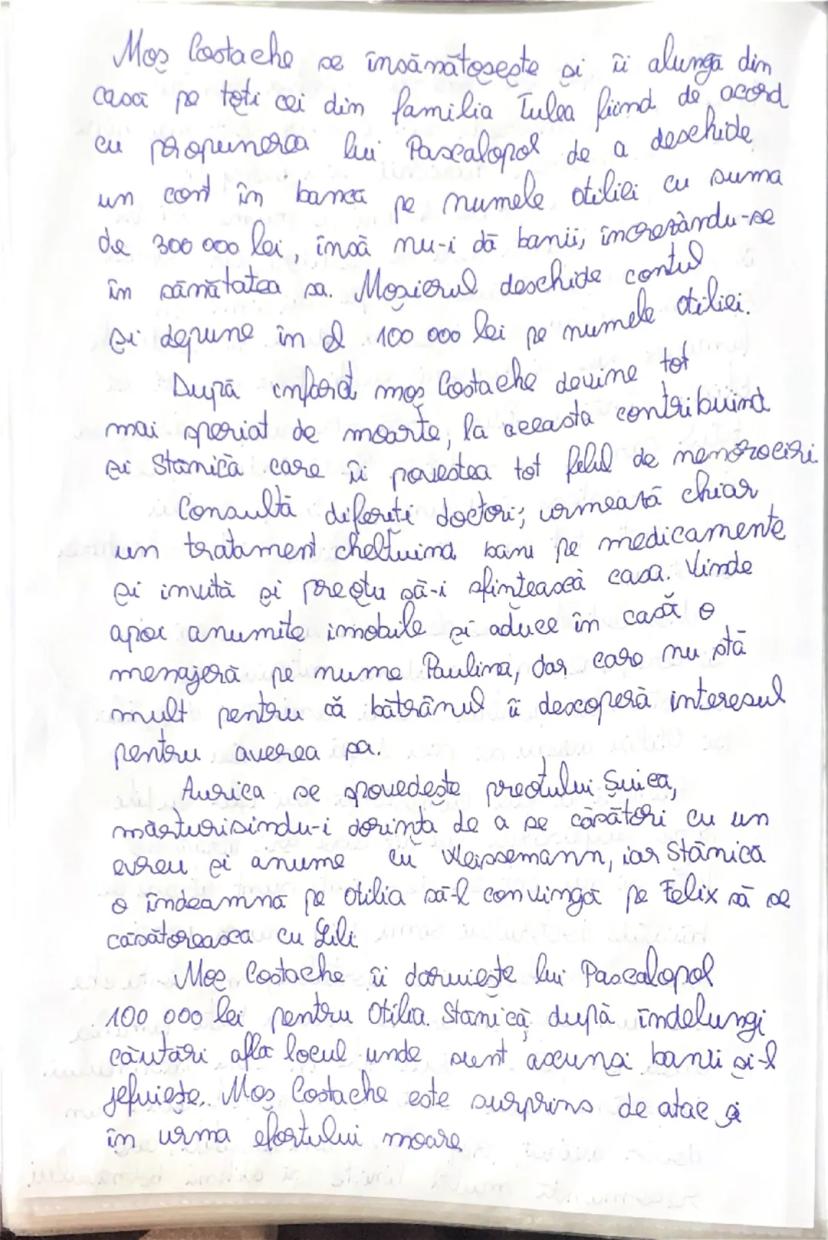 Moș Costache se însănătoșește și îi alungă din
casă pe toți cei din familia Tulea fiind de acord
cu propunerea lui Pascalopol de a deschide
un cont în bancă pe numele Otiliei cu suma
de 300 000 lei, însă nu-i dă banii, încrezându-se
în sănătatea sa. Moșierul deschide contul
și depune în el 100 000 lei pe numele Otiliei.
După infarct moș Costache devine tot
mai speriat de moarte, la aceasta contribuind
și Stănică care îi povestea tot felul de nenorociri.
Consultă diferiți doctori; urmează chiar
un tratament cheltuind bani pe medicamente
și invită și preotu să-i sfințească casa. Vinde
apoi anumite imobile și aduce în casă o
menajeră pe nume Paulina, dar care nu stă
mult pentru că bătrânul îi descoperă interesul
pentru averea sa.
Aurica se spovedește preotului Șuica,
mărturisindu-i dorința de a se căsători cu un
evreu și anume cu Weissmann, iar Stănică
o îndeamnă pe Otilia să-l convingă pe Felix să se
căsătorească cu Lili
Moș Costache îi dăruiește lui Pascalopol
100 000 lei pentru Otilia. Stănică, după îndelungi
căutări află locul unde sunt ascunși banii și-l
jefuiește. Moș Costache este surprins de atac și
în urma efortului moare